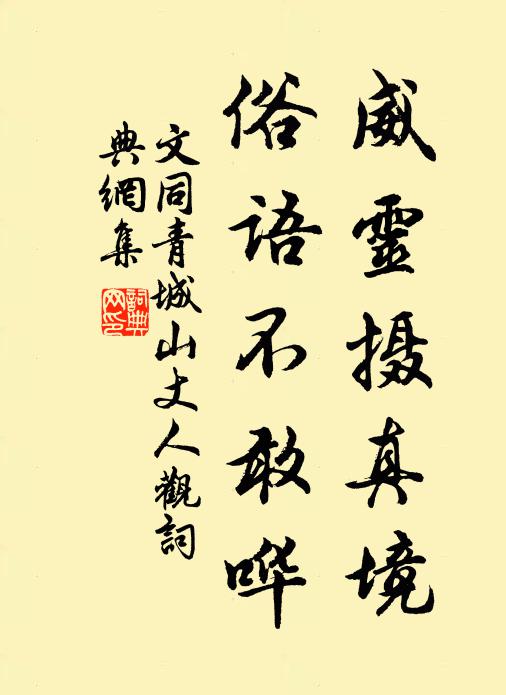 威靈摄真境
俗語不敢哗
文同青城山丈人觀詞
典網集
詞典網印